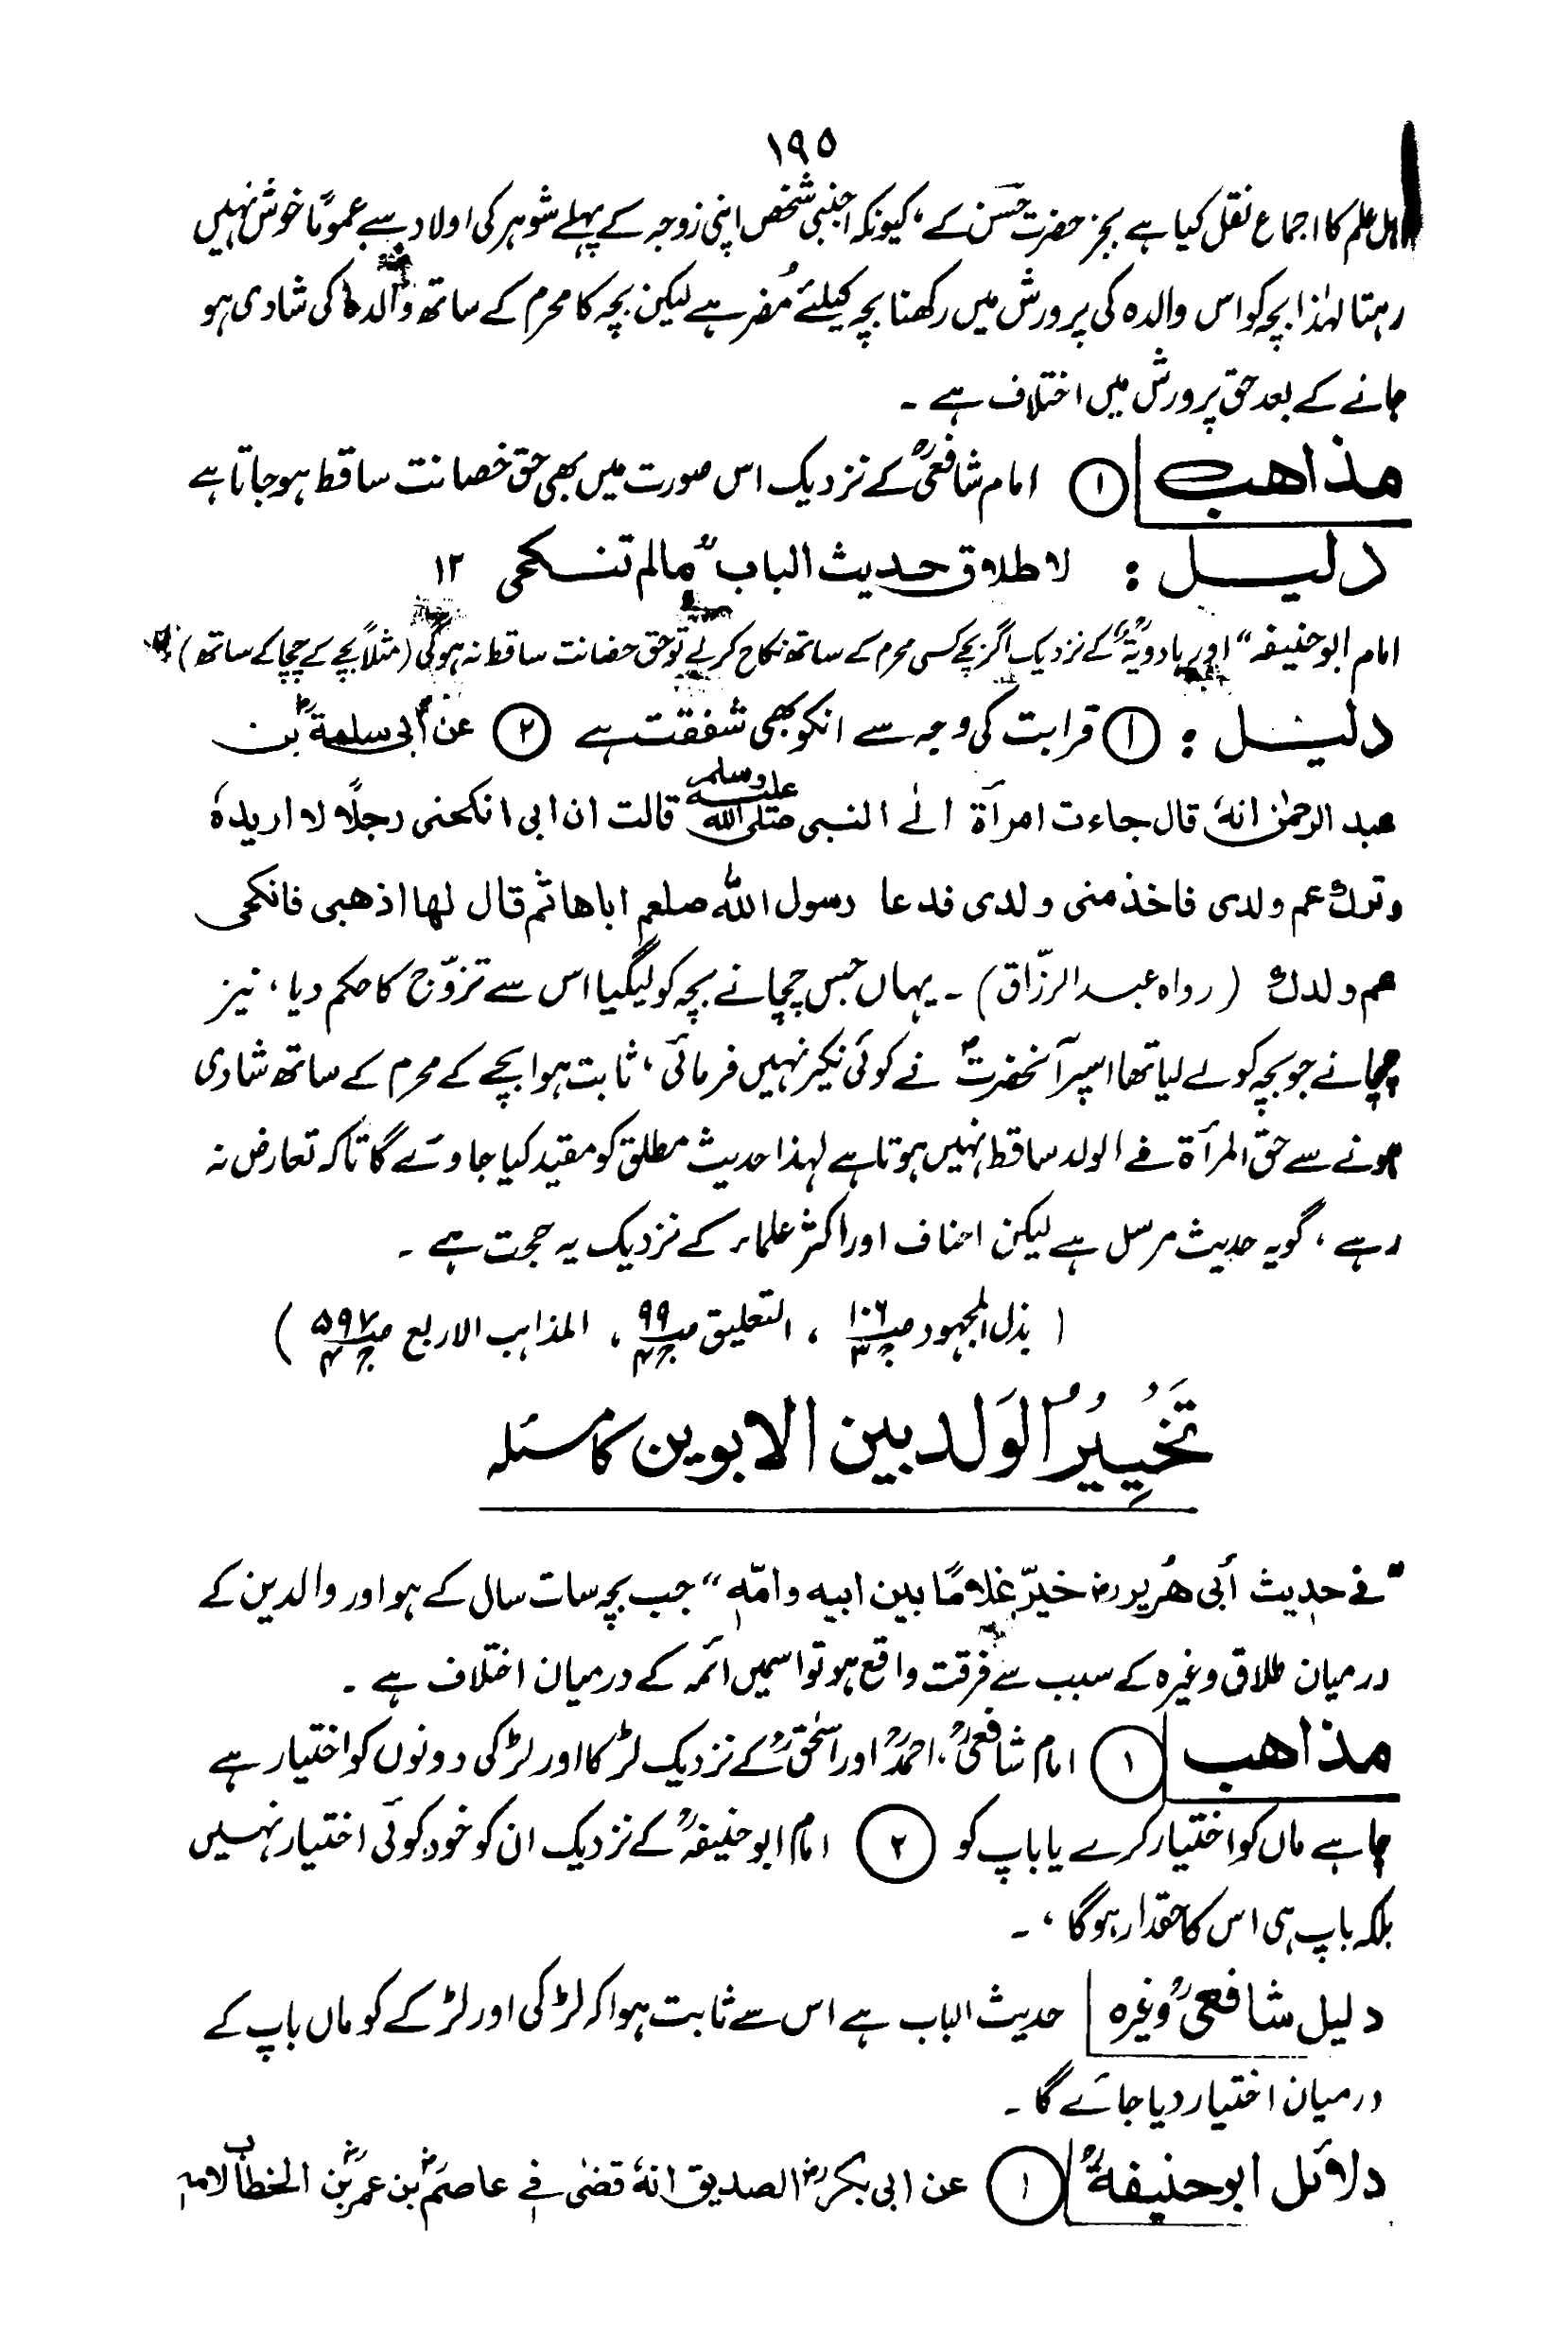 ۱۹۵
اہل علم کا اجماع نقل کیا ہے بجز حضرت حسن کے ، کیونکہ اجنبی شخص اپنی زوجہ کے پہلے شوہر کی اولاد سے عمومًا خوش نہیں
رہتا لہٰذا بچہ کو اس والدہ کی پرورش میں رکھنا بچہ کیلئے مُضر ہے لیکن بچہ کا محرم کے ساتھ والدہ کی شادی ہو
جانے کے بعد حق پرورش میں اختلاف ہے ۔
مذاهب ① امام شافعیؒ کے نزدیک اس صورت میں بھی حق خصانت ساقط ہو جاتا ہے
دلیل : لاطلاق حدیث الباب " مالم تنکحی ۱۲
امام ابو حنیفہ " اور کے نزدیک اگر بچے کسی محرم کے ساتھ نکاح کرلے تو حق حضانت ساقط نہ ہوگی (مثلاً بچے کے چچا کے ساتھ)
دلیل : ① قرابت کی وجہ سے انکو بھی شفقت ہے ② عن أبی سلمةؓ بن
عبد الرحمٰن انهٗ قال جاءت امرأة الے النبی صلی الله علیه وسلم قالت ان ابی انکحنی رجلًا لا اریدهٗ
وترك عم ولدی فاخذ منی ولدی فدعا رسول الله صلعم اباها ثم قال لها اذهبی فانکحی
عم ولدك (رواه عبد الرزّاق) ۔ یہاں جس چچا نے بچہ کو لیگیا اس سے تزوّج کا حکم دیا ، نیز
چچا نے جو بچہ کو لے لیا تھا اسپر آنحضرتؐ نے کوئی نکیر نہیں فرمائی ، ثابت ہوا بچے کے محرم کے ساتھ شادی
ہونے سے حق المرأۃ فے الولد ساقط نہیں ہوتا ہے لہذا حدیث مطلق کو مقید کیا جاوئے گا تاکہ تعارض نہ
رہے ، گو یہ حدیث مرسل ہے لیکن احناف اور اکثر علماء کے نزدیک یہ حجت ہے ۔
( بذل المجہود ص۱۰۶ ج۳ ، التعلیق ص۹۹ ج۴ ، المذاہب الاربع ص۵۹۷ ج۴ )
تَخْيِيْرُ الْوَلَد بين الابوين کا مسئلہ
" فے حدیث أبی هُریرهؓ خیرّ غلامًا بین ابیه وامّهٖ " جب بچہ سات سال کے ہو اور والدین کے
درمیان طلاق وغیرہ کے سبب سے فرقت واقع ہو تو اسمیں ائمہ کے درمیان اختلاف ہے ۔
مذاهب ① امام شافعیؒ ، احمدؒ اور اسحٰقؒ کے نزدیک لڑکا اور لڑکی دونوں کو اختیار ہے
چاہے ماں کو اختیار کرے یا باپ کو ② امام ابو حنیفہؒ کے نزدیک ان کو خود کوئی اختیار نہیں
بلکہ باپ ہی اس کا حقدار ہوگا ، ۔
دلیل شافعیؒ وغیرہ حدیث الباب ہے اس سے ثابت ہوا کہ لڑکی اور لڑکے کو ماں باپ کے
درمیان اختیار دیا جائے گا ۔
دلائل ابو حنیفةؒ ① عن ابی بکرؓ الصدیق انهٗ قضٰی فے عاصمؓ بن عمرؓ بن الخطاب لامهٖ